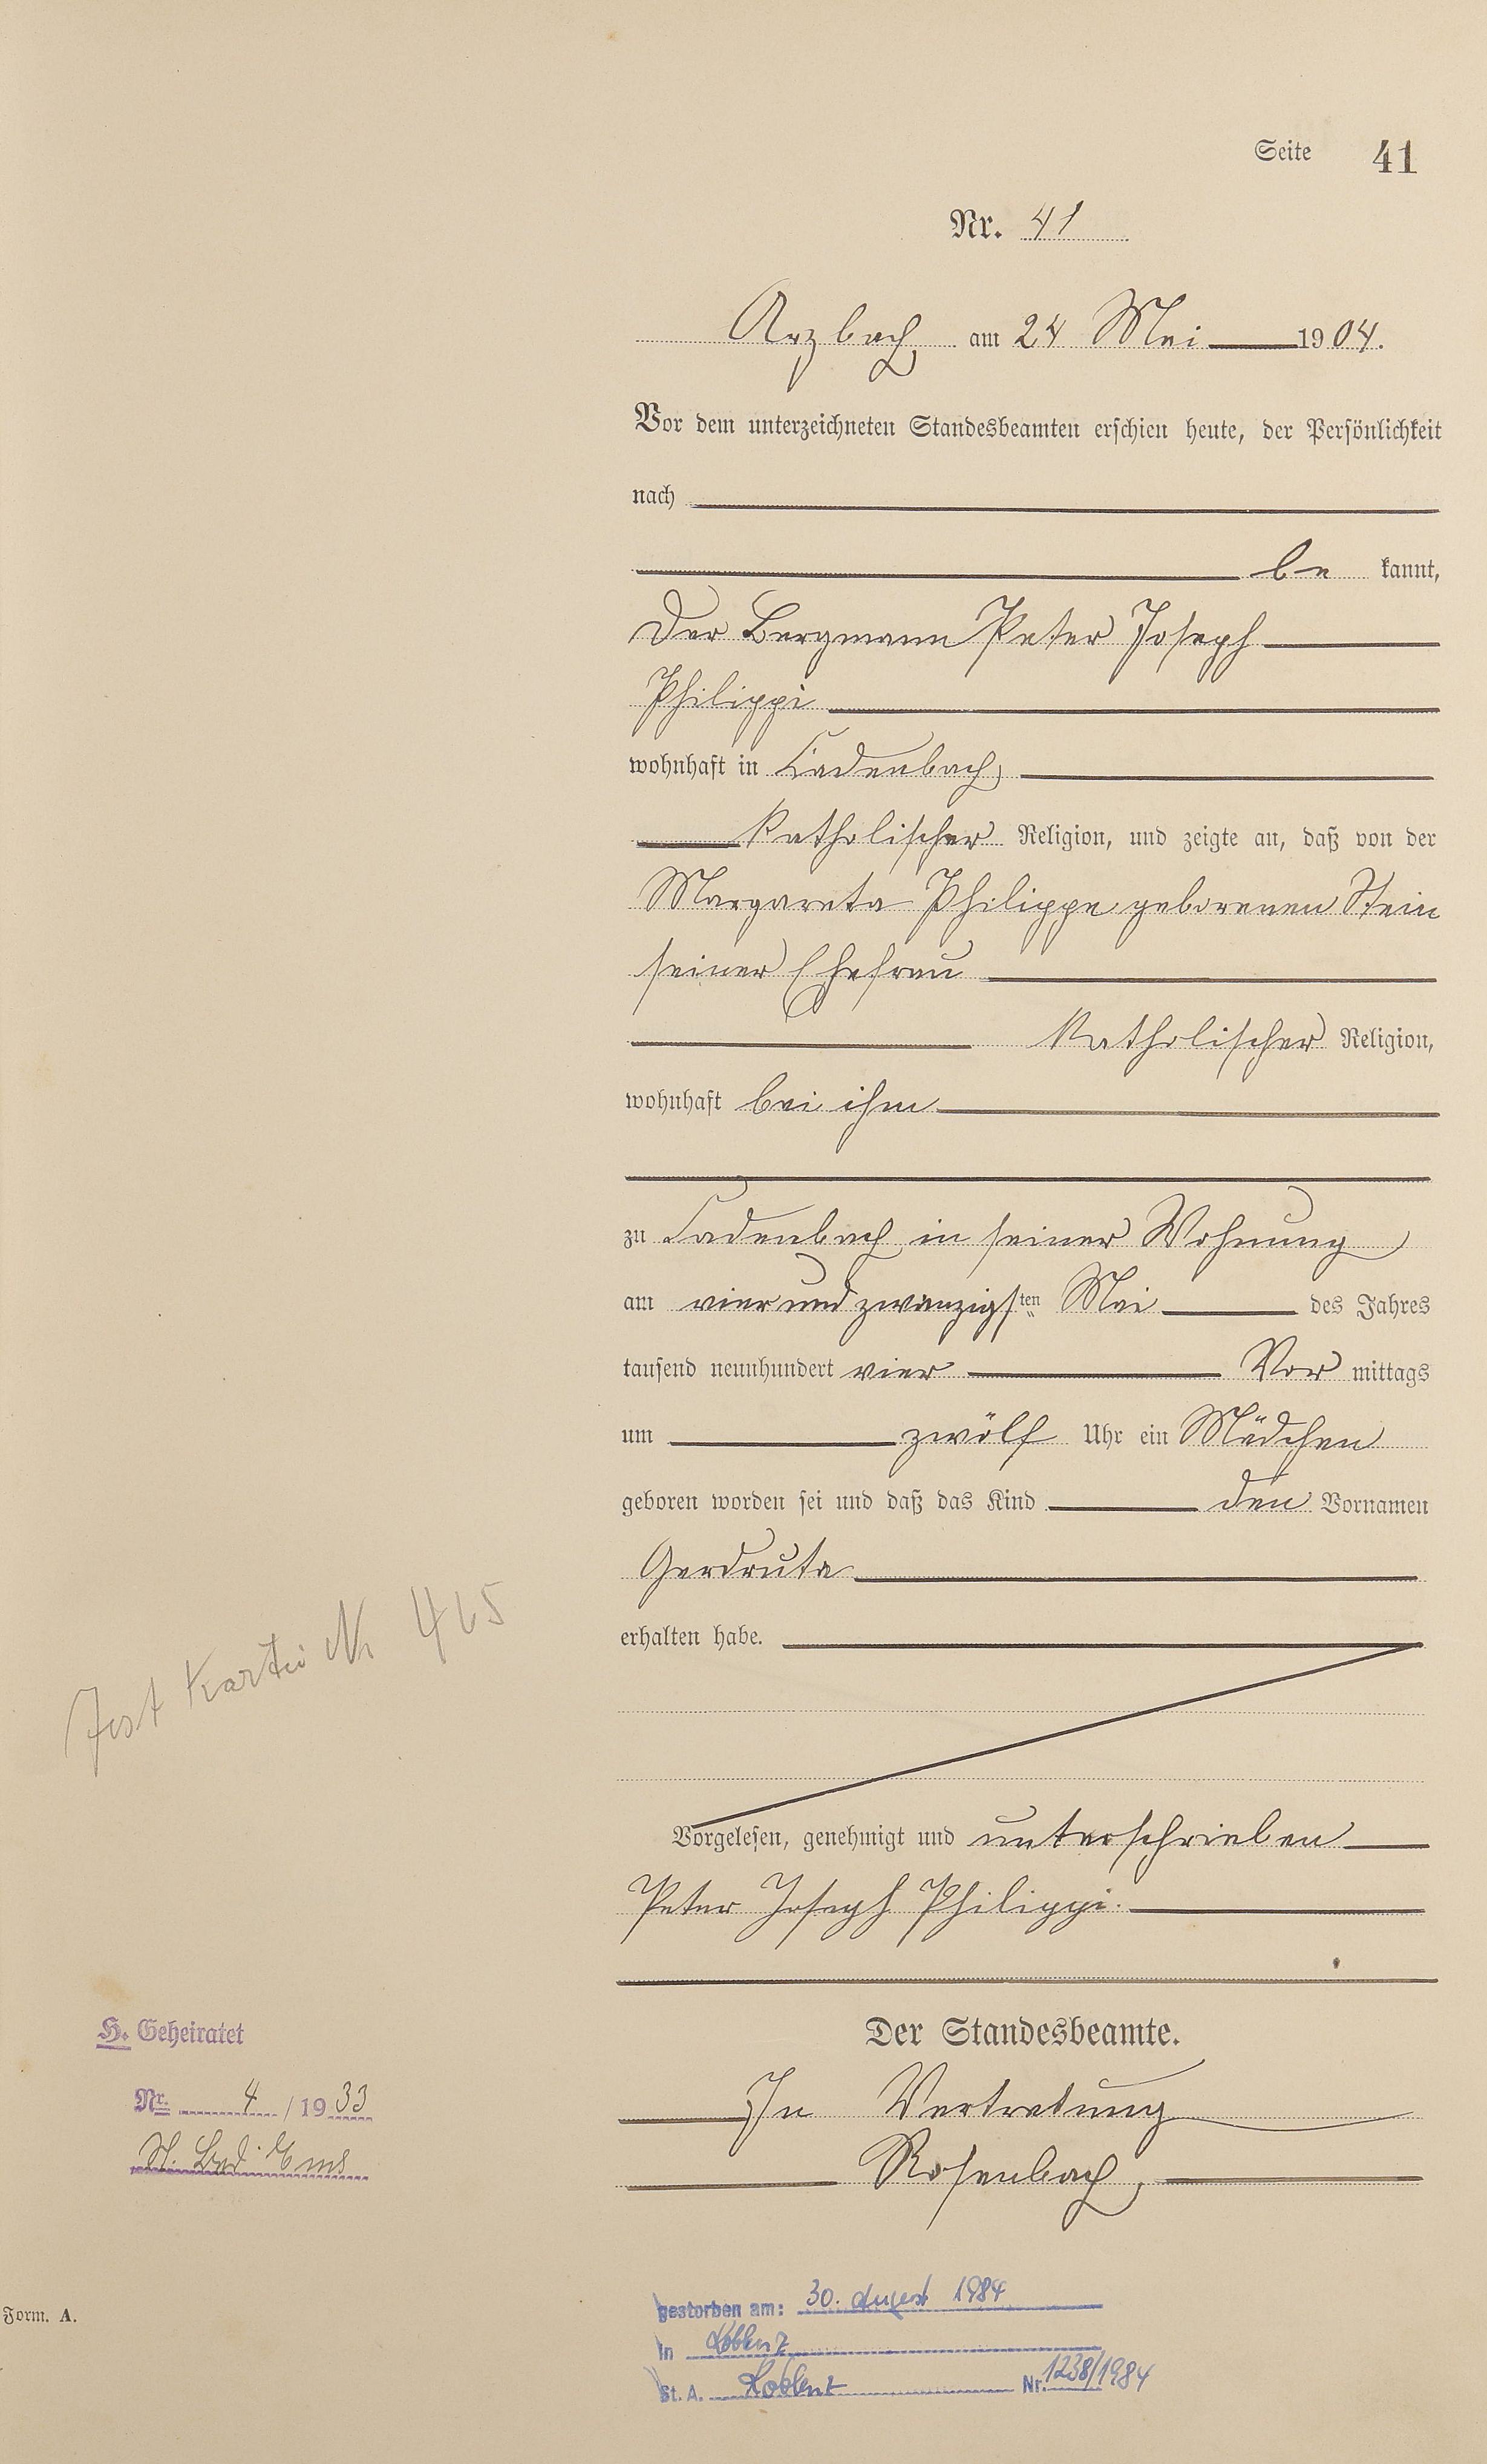 Seite 41
Nr. 41
Arzbach am 24 Mai 1904.
Vor dem unterzeichneten Standesbeamten erschien heute, der Persönlichkeit
nach
be kannt,
der Bergmann Peter Joseph
Philippi
wohnhaft in Cadenbach,
katholischer Religion, und zeigte an, daß von der
Margareta Philippe geborenen Stein
seiner Ehefrau
katholischer Religion,
wohnhaft bei ihm
zu Cadenbach in seiner Wohnung
am vier und zwanzigsten Mai des Jahres
tausend neunhundert vier Vor mittags
um zwölf Uhr ein Mädchen
geboren worden sei und daß das Kind den Vornamen
Gerdruta
erhalten habe.
Kartei Nr 465
Vorgelesen, genehmigt und unterschrieben
Peter Joseph Philippi.
Der Standesbeamte.
In Vertretung
Rosenbach
H. Geheiratet
Nr. 4 / 1933
St. Bad Ems
Form. A.
gestorben am: 30. August 1984
in Koblenz
St. A. Koblenz Nr. 1238/1984